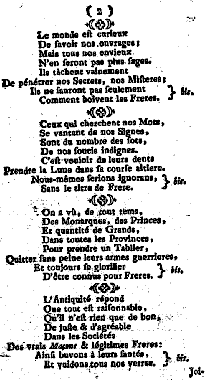 ( 2 )
Le monde est curieux
De savoir nos ouvrages;
Mais tous nos envieux
N'en seront pas plus sages.
Ils tâchent vainement
De pénétrer nos Secrets, nos Misteres;
Ils ne sauront pas seulement
Comment boivent les Freres. } bis.
Ceux qui cherchent nos Mots,
Se vantant de nos Signes,
Sont du nombre des sots,
De nos soucis indignes.
C'est vouloir de leurs dents
Prendre la Lune dans sa course altiere.
Nous-mêmes serions ignorans,
Sans le titre de Frere. } bis.
On a vû, de tout tems,
Des Monarques, des Princes,
Et quantité de Grands,
Dans toutes les Provinces,
Pour prendre un Tablier,
Quitter sans peine leurs armes guerrieres,
Et toujours se glorifier
D'être connus pour Freres. } bis.
L'Antiquité répond
Que tout est raisonnable,
Qu'il n'est rien que de bon,
De juste & d'agréable
Dans les Sociétés
Des vrais Maçons & légitimes Freres:
Ainsi buvons à leurs santés,
Et vuidons tous nos verres. } bis.
Joi-